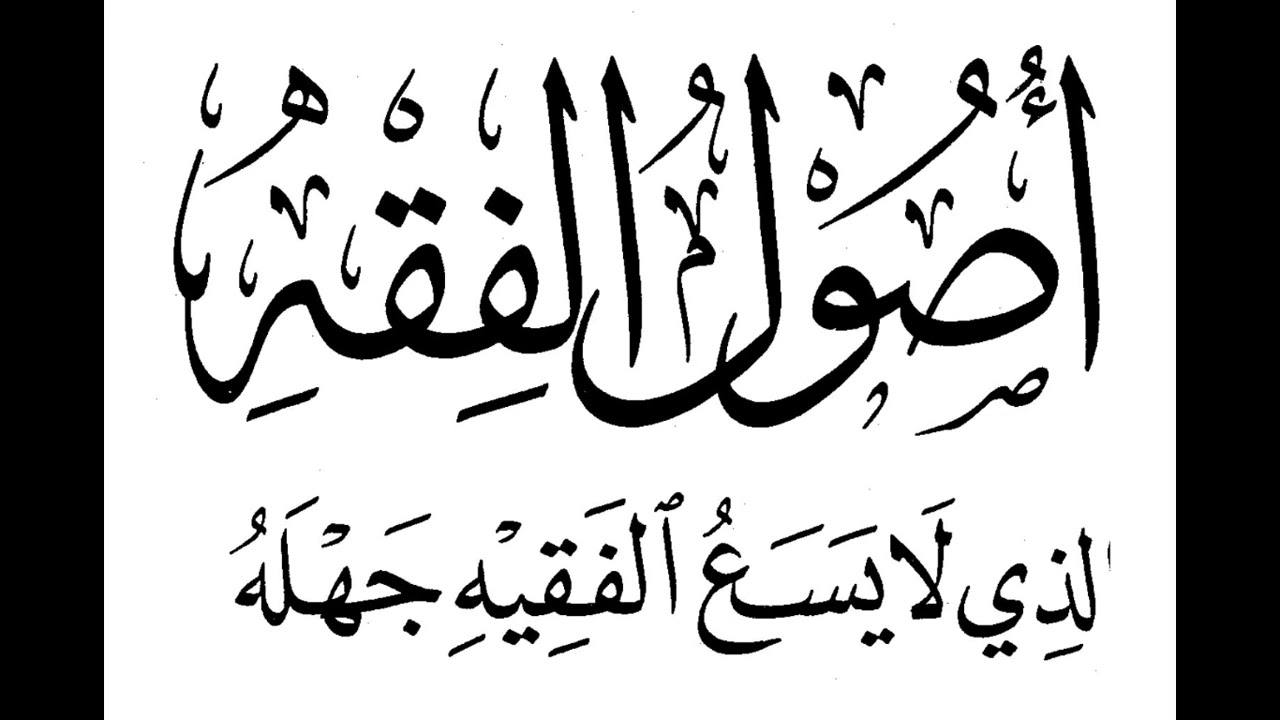 أُصُوْلُ الفِقْهِ
الذِي لَا يَسَعُ ٱلْفَقِيْهِ جَهْلَهُ